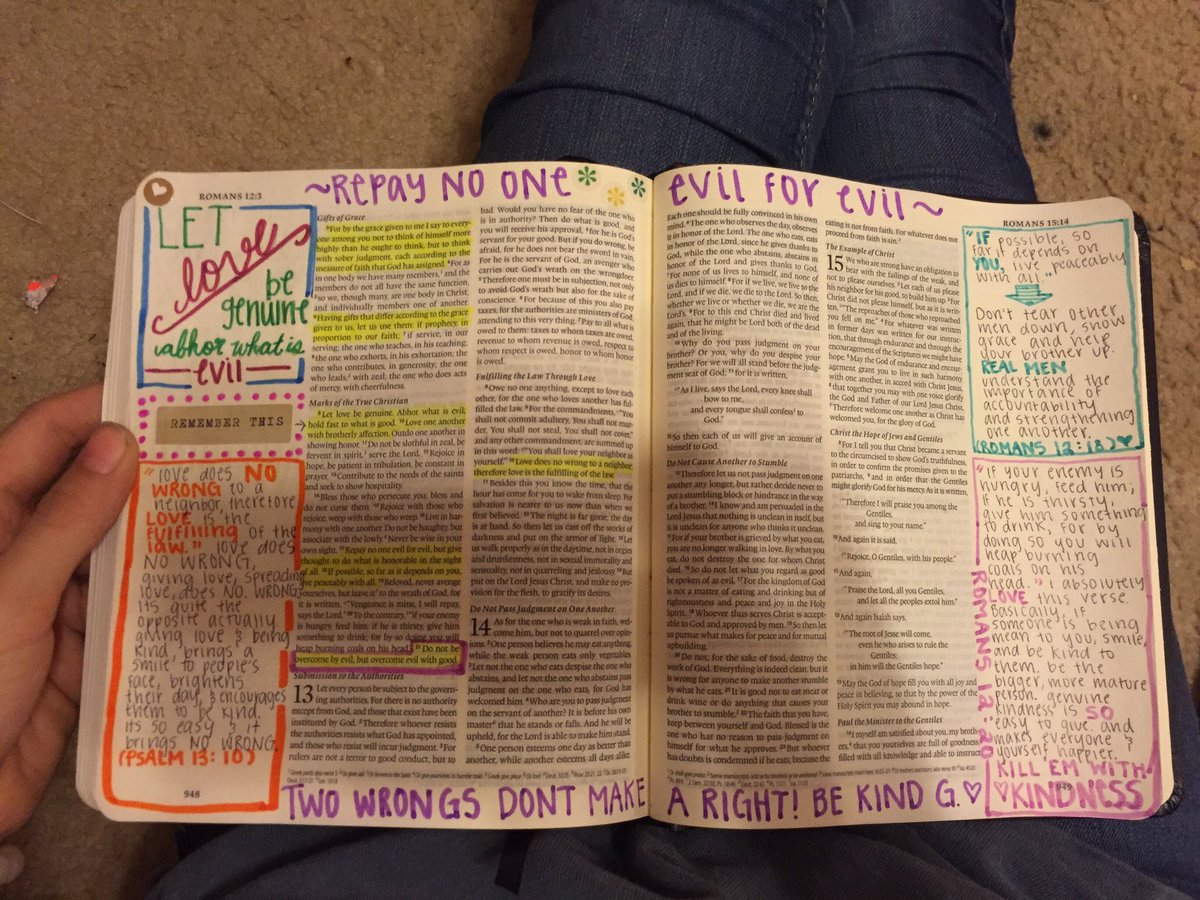 ~REPAY NO ONE
EVIL FOR EVIL~
ROMANS 12:3
LET
love
be
genuine
abhor what is
EVIL
REMEMBER THIS
"LOVE DOES NO
WRONG TO A
NEIGHBOR, THEREFORE
LOVE IS THE
FULFILLING OF THE
LAW." LOVE DOES
NO WRONG,
GIVING LOVE, SPREADING
LOVE, DOES NO WRONG.
ITS QUITE THE
OPPOSITE ACTUALLY
GIVING LOVE & BEING
KIND, BRINGS A
SMILE TO PEOPLE'S
FACE, BRIGHTENS
THEIR DAY, & ENCOURAGES
THEM TO BE KIND.
ITS SO EASY & IT
BRINGS NO WRONG.
(PSALM 13:10)
948
Gifts of Grace
3 For by the grace given to me I say to every
one among you not to think of himself more
highly than he ought to think, but to think
with sober judgment, each according to the
measure of faith that God has assigned. 4 For as
in one body we have many members, and the
members do not all have the same function,
5 so we, though many, are one body in Christ,
and individually members one of another.
6 Having gifts that differ according to the grace
given to us, let us use them: if prophecy, in
proportion to our faith; 7 if service, in our
serving; the one who teaches, in his teaching;
8 the one who exhorts, in his exhortation; the
one who contributes, in generosity; the one
who leads, with zeal; the one who does acts
of mercy, with cheerfulness.
Marks of the True Christian
9 Let love be genuine. Abhor what is evil;
hold fast to what is good. 10 Love one another
with brotherly affection. Outdo one another in
showing honor. 11 Do not be slothful in zeal, be
fervent in spirit, serve the Lord. 12 Rejoice in
hope, be patient in tribulation, be constant in
prayer. 13 Contribute to the needs of the saints
and seek to show hospitality.
14 Bless those who persecute you; bless and
do not curse them. 15 Rejoice with those who
rejoice, weep with those who weep. 16 Live in har-
mony with one another. Do not be haughty, but
associate with the lowly. Never be wise in your
own sight. 17 Repay no one evil for evil, but give
thought to do what is honorable in the sight
of all. 18 If possible, so far as it depends on you,
live peaceably with all. 19 Beloved, never avenge
yourselves, but leave it to the wrath of God, for
it is written, "Vengeance is mine, I will repay,
says the Lord." 20 To the contrary, "if your enemy
is hungry, feed him; if he is thirsty, give him
something to drink; for by so doing you will
heap burning coals on his head." 21 Do not be
overcome by evil, but overcome evil with good.
Submission to the Authorities
13 Let every person be subject to the govern-
ing authorities. For there is no authority
except from God, and those that exist have been
instituted by God. 2 Therefore whoever resists
the authorities resists what God has appointed,
and those who resist will incur judgment. 3 For
rulers are not a terror to good conduct, but to
bad. Would you have no fear of the one who
is in authority? Then do what is good, and
you will receive his approval, 4 for he is God's
servant for your good. But if you do wrong, be
afraid, for he does not bear the sword in vain.
For he is the servant of God, an avenger who
carries out God's wrath on the wrongdoer.
5 Therefore one must be in subjection, not only
to avoid God's wrath but also for the sake of
conscience. 6 For because of this you also pay
taxes, for the authorities are ministers of God,
attending to this very thing. 7 Pay to all what is
owed to them: taxes to whom taxes are owed,
revenue to whom revenue is owed, respect to
whom respect is owed, honor to whom honor
is owed.
Fulfilling the Law Through Love
8 Owe no one anything, except to love each
other, for the one who loves another has ful-
filled the law. 9 For the commandments, "You
shall not commit adultery, You shall not mur-
der, You shall not steal, You shall not covet,"
and any other commandment, are summed up
in this word: "You shall love your neighbor as
yourself." 10 Love does no wrong to a neighbor;
therefore love is the fulfilling of the law.
11 Besides this you know the time, that the
hour has come for you to wake from sleep. For
salvation is nearer to us now than when we
first believed. 12 The night is far gone; the day
is at hand. So then let us cast off the works of
darkness and put on the armor of light. 13 Let
us walk properly as in the daytime, not in orgies
and drunkenness, not in sexual immorality and
sensuality, not in quarreling and jealousy. 14 But
put on the Lord Jesus Christ, and make no pro-
vision for the flesh, to gratify its desires.
Do Not Pass Judgment on One Another
14 As for the one who is weak in faith, wel-
come him, but not to quarrel over opin-
ions. 2 One person believes he may eat anything,
while the weak person eats only vegetables.
3 Let not the one who eats despise the one who
abstains, and let not the one who abstains pass
judgment on the one who eats, for God has
welcomed him. 4 Who are you to pass judgment
on the servant of another? It is before his own
master that he stands or falls. And he will be
upheld, for the Lord is able to make him stand.
5 One person esteems one day as better than
another, while another esteems all days alike.
Each one should be fully convinced in his own
mind. 6 The one who observes the day, observes
it in honor of the Lord. The one who eats, eats
in honor of the Lord, since he gives thanks to
God, while the one who abstains, abstains in
honor of the Lord and gives thanks to God.
7 For none of us lives to himself, and none of
us dies to himself. 8 For if we live, we live to the
Lord, and if we die, we die to the Lord. So then,
whether we live or whether we die, we are the
Lord's. 9 For to this end Christ died and lived
again, that he might be Lord both of the dead
and of the living.
10 Why do you pass judgment on your
brother? Or you, why do you despise your
brother? For we will all stand before the judg-
ment seat of God; 11 for it is written,
"As I live, says the Lord, every knee shall
bow to me,
and every tongue shall confess to
God."
12 So then each of us will give an account of
himself to God.
Do Not Cause Another to Stumble
13 Therefore let us not pass judgment on one
another any longer, but rather decide never to
put a stumbling block or hindrance in the way
of a brother. 14 I know and am persuaded in the
Lord Jesus that nothing is unclean in itself, but it
is unclean for anyone who thinks it unclean.
15 For if your brother is grieved by what you eat,
you are no longer walking in love. By what you
eat, do not destroy the one for whom Christ
died. 16 So do not let what you regard as good
be spoken of as evil. 17 For the kingdom of God
is not a matter of eating and drinking but of
righteousness and peace and joy in the Holy
Spirit. 18 Whoever thus serves Christ is accept-
able to God and approved by men. 19 So then let
us pursue what makes for peace and for mutual
upbuilding.
20 Do not, for the sake of food, destroy the
work of God. Everything is indeed clean, but it
is wrong for anyone to make another stumble
by what he eats. 21 It is good not to eat meat or
drink wine or do anything that causes your
brother to stumble. 22 The faith that you have,
keep between yourself and God. Blessed is the
one who has no reason to pass judgment on
himself for what he approves. 23 But whoever
has doubts is condemned if he eats, because the
eating is not from faith. For whatever does not
proceed from faith is sin.
The Example of Christ
15 We who are strong have an obligation to
bear with the failings of the weak, and
not to please ourselves. 2 Let each of us please
his neighbor for his good, to build him up. 3 For
Christ did not please himself, but as it is writ-
ten, "The reproaches of those who reproached
you fell on me." 4 For whatever was written
in former days was written for our instruc-
tion, that through endurance and through the
encouragement of the Scriptures we might have
hope. 5 May the God of endurance and encour-
agement grant you to live in such harmony
with one another, in accord with Christ Jesus,
6 that together you may with one voice glorify
the God and Father of our Lord Jesus Christ.
7 Therefore welcome one another as Christ has
welcomed you, for the glory of God.
Christ the Hope of Jews and Gentiles
8 For I tell you that Christ became a servant
to the circumcised to show God's truthfulness,
in order to confirm the promises given to the
patriarchs, 9 and in order that the Gentiles
might glorify God for his mercy. As it is written,
"Therefore I will praise you among the
Gentiles,
and sing to your name."
10 And again it is said,
"Rejoice, O Gentiles, with his people."
11 And again,
"Praise the Lord, all you Gentiles,
and let all the peoples extol him."
12 And again Isaiah says,
"The root of Jesse will come,
even he who arises to rule the
Gentiles;
in him will the Gentiles hope."
13 May the God of hope fill you with all joy and
peace in believing, so that by the power of the
Holy Spirit you may abound in hope.
Paul the Minister to the Gentiles
14 I myself am satisfied about you, my broth-
ers, that you yourselves are full of goodness,
filled with all knowledge and able to instruct
ROMANS 15:14
"IF POSSIBLE, SO
FAR IT DEPENDS ON
YOU, LIVE PEACEABLY
WITH ALL."
DON'T TEAR OTHER
MEN DOWN, SHOW
GRACE AND HELP
YOUR BROTHER UP.
REAL MEN
UNDERSTAND THE
IMPORTANCE OF
ACCOUNTABILITY
AND STRENGTHENING
ONE ANOTHER.
(ROMANS 12:18)
"IF YOUR ENEMY IS
HUNGRY, FEED HIM;
IF HE IS THIRSTY,
GIVE HIM SOMETHING
TO DRINK; FOR BY
DOING SO YOU WILL
HEAP BURNING
COALS ON HIS
HEAD." I ABSOLUTELY
LOVE THIS VERSE.
BASICALLY, IF
SOMEONE IS BEING
MEAN TO YOU, SMILE,
AND BE KIND TO
THEM. BE THE
BIGGER, MORE MATURE
PERSON. GENUINE
KINDNESS IS SO
EASY TO GIVE. AND
MAKES EVERYONE &
YOURSELF HAPPIER.
ROMANS 12:20
KILL EM WITH
KINDNESS
949
TWO WRONGS DONT MAKE
A RIGHT! BE KIND G.